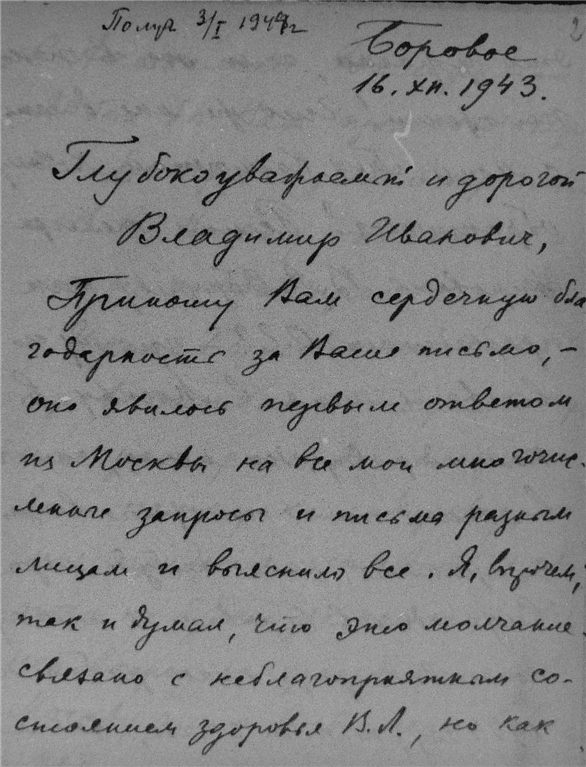 Получ 3/I 1944г
2
Боровое
16.XII.1943.
Глубокоуважаемый и дорогой
Владимир Иванович,
Приношу Вам сердечную бла
годарность за Ваше письмо, –
оно явилось первым ответом
из Москвы на все мои многочис-
ленные запросы и письма разным
лицам и выяснило все. Я, впрочем,
так и думал, что это молчание
связано с неблагоприятным со-
стоянием здоровья В.Л., но как